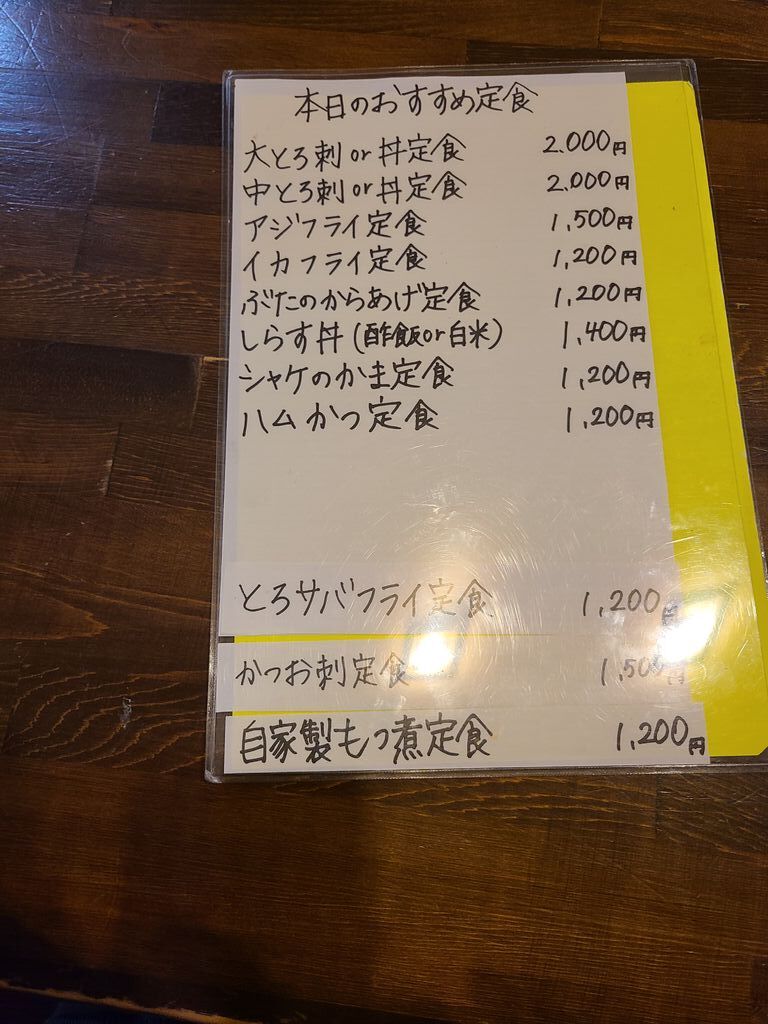 本日のおすすめ定食
大とろ刺or丼定食 2.000円
中とろ刺or丼定食 2.000円
アジフライ定食 1,500円
イカフライ定食 1,200円
ぶたのからあげ定食 1,200円
しらす丼(酢飯or白米) 1,400円
シャケのかま定食 1,200円
ハムかつ定食 1,200円
とろサバフライ定食 1,200円
かつお刺定食 1,500円
自家製もつ煮定食 1,200円